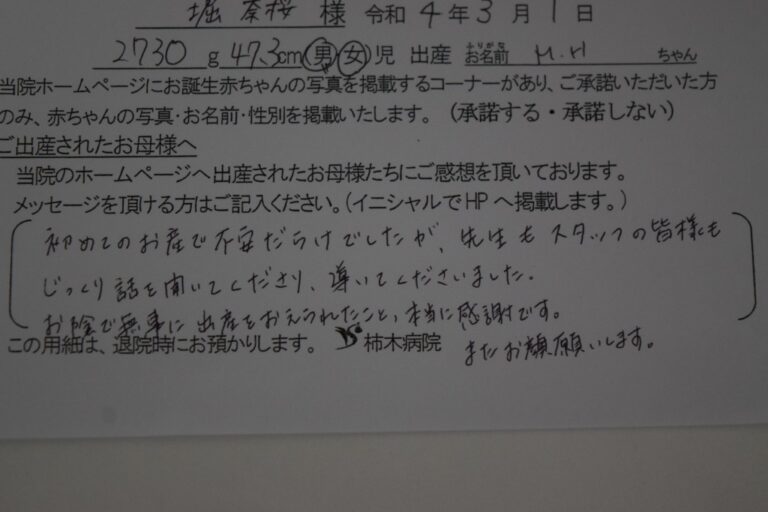 堀 奈桜 様 令和4年3月1日
2730 g 47.3cm (男・女)児 出産 お名前 M.H ちゃん
ふりがな
当院ホームページにお誕生赤ちゃんの写真を掲載するコーナーがあり、ご承諾いただいた方
のみ、赤ちゃんの写真・お名前・性別を掲載いたします。 (承諾する・承諾しない)
ご出産されたお母様へ
当院のホームページへ出産されたお母様たちにご感想を頂いております。
メッセージを頂ける方はご記入ください。(イニシャルでHPへ掲載します。)
初めてのお産で不安だらけでしたが、先生もスタッフの皆様も
じっくり話を聞いてくださり、導いてくださいました。
お陰で無事に出産をおえられたこと、本当に感謝です。
この用紙は、退院時にお預かりします。 柿木病院
またお願願いします。